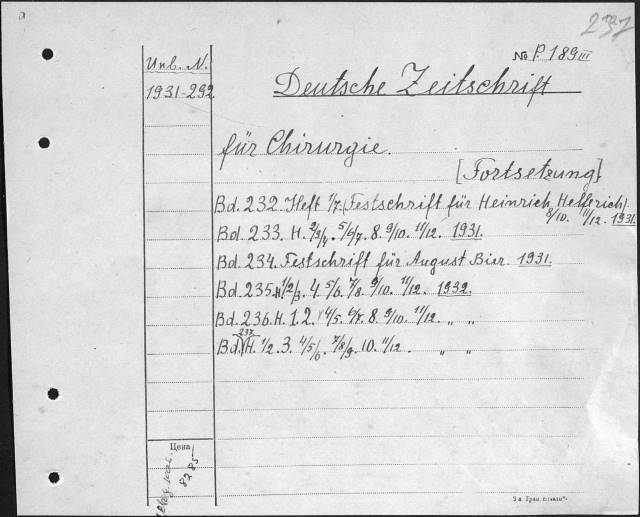 a
237
№ P. 189 III
Unb. N.
1931-292
Deutsche Zeitschrift
für Chirurgie.
[Fortsetzung]
Bd. 232. Heft 1/7. (Festschrift für Heinrich Helferich).
8/10. 11/12. 1931.
Bd. 233. H. 2/3/4. 5/6/7. 8. 9/10. 11/12. 1931.
Bd. 234. Festschrift für August Bier 1931.
Bd. 235. H. 1/2/3. 4. 5/6. 7/8. 9/10. 11/12. 1932.
Bd. 236. H. 1. 2. 4/5. 6/7. 8. 9/10. 11/12. „ „
237.
Bd. H. 1/2. 3. 4/5/6. 7/8/9. 10. 11/12. „ „
Цена
8285